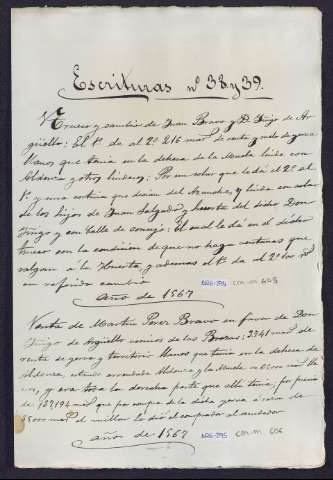 Escrituras nº 38 y 39.
Trueco y cambio de Juan Bravo y D. Íñigo de Ar-
güello: El 1º da al 2º 216 mrs de renta y medio de yerva
llanos que tenia en la dehesa de la Mucha linda con
Aldonza y otros linderos: Por un solar que le dá el 2º al
1º y una cortina que decian del Azauche, y linda con solar
de los hijos de Juan Salgado y huerta del dicho Don
Íñigo y con Calle de consejo: El cual le dá en el dicho
trueco con la condicion de que no haga ventanas que
salgan á la Huerta, y ademas el 1º da al 2º
en referido cambio
Año de 1567
Venta de Martin Perez Bravo en favor de Don
Íñigo de Argüello vecinos de las Brozas: 3,941 mrs de
renta de yerva y territorio llanos que tenia en la dehesa de
Aldonza, estando arrendada Aldonza y la Mucha
y era toda la derecha parte que allí tenia: por precio
de 137,194 mrs que por compra de la dicha yerva á razon de
35000 mrs el millar le dió el comprador al vendedor
Año de 1567